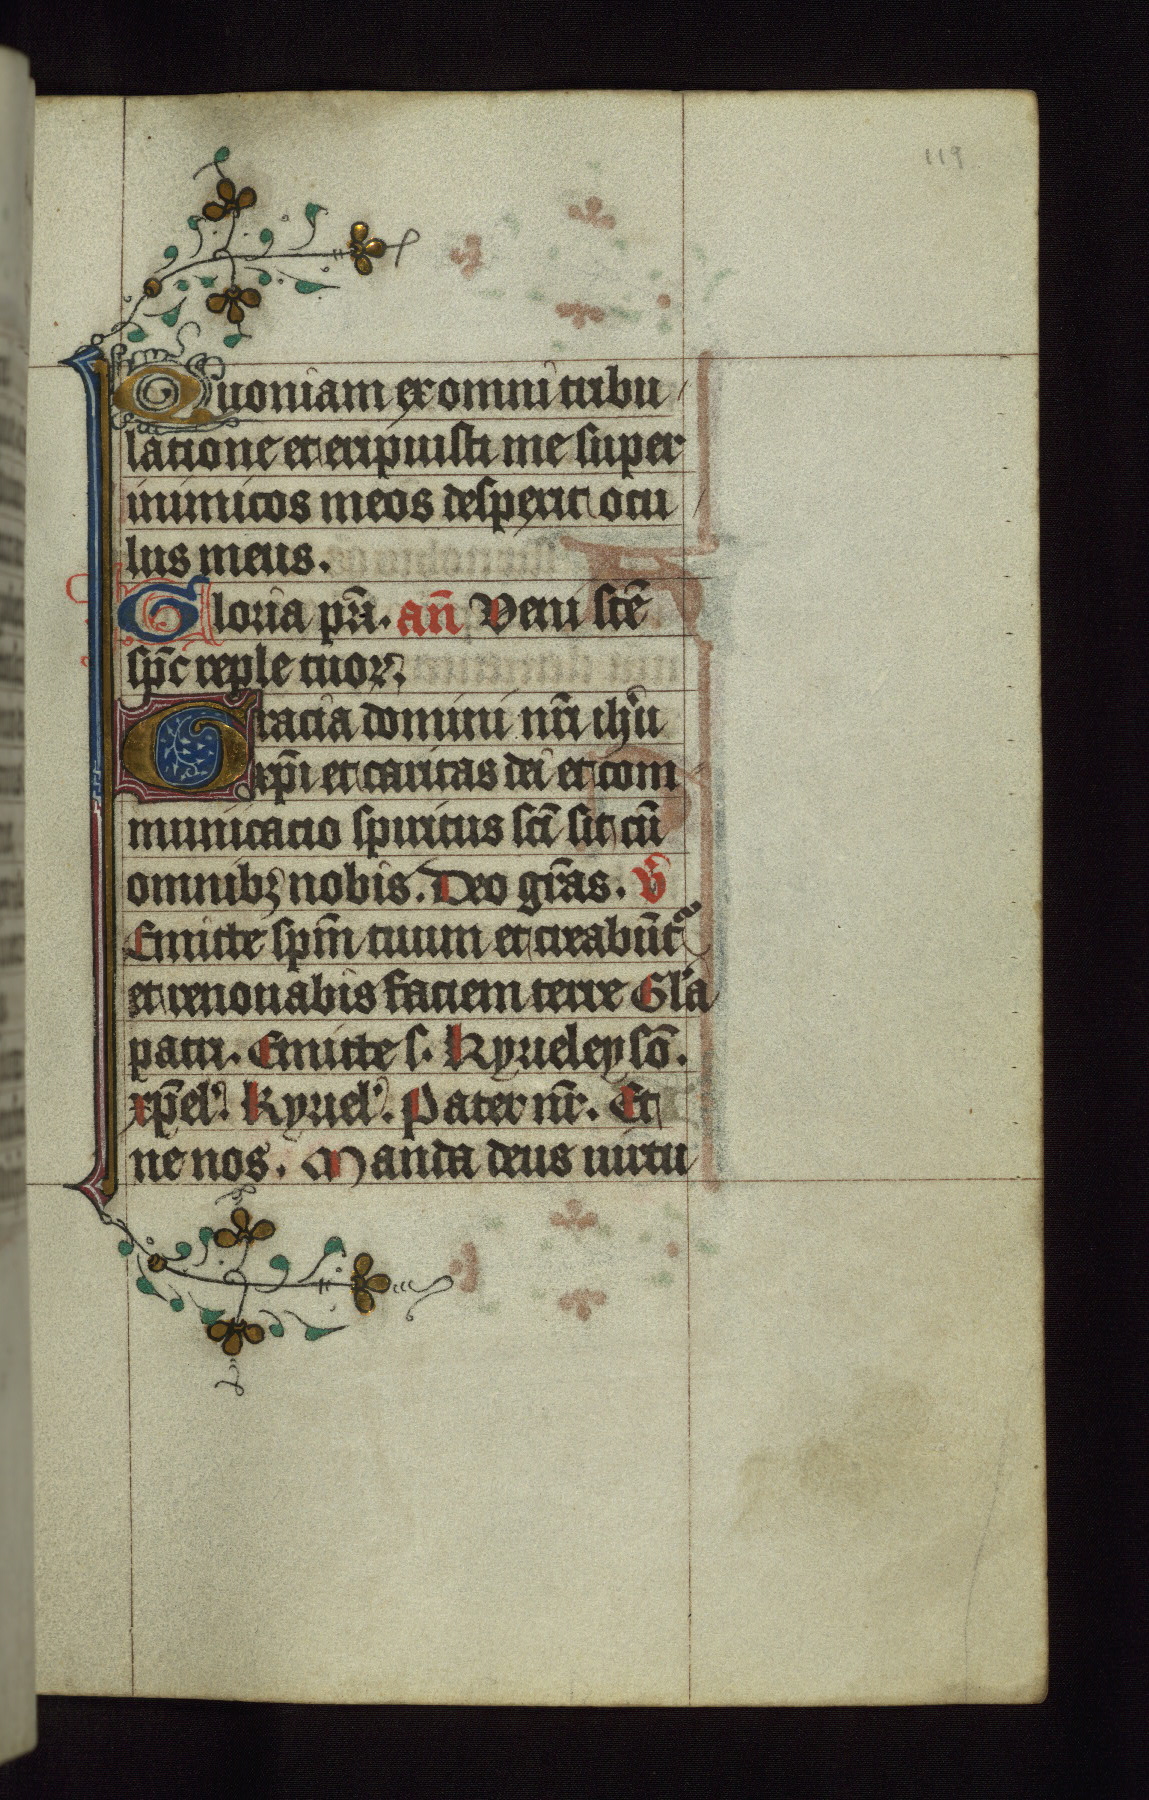 119
Quoniam ex omni tribu
latione et eripuisti me super
inimicos meos desperit ocu
lus meus.
Gloria pr̄i. an̄ Veni sc̄e
sp̄c reple tuoꝝ.
Gracia domini nr̄i ih'u
xp̄i et caritas dei et com
municatio spiritus sc̄i sit cū
omnibꝫ nobis. Deo gr̄as. V̄
Emitte sp̄m tuum et creabūt᷑
et renouabis faciem terre Gl'a
patri. Emitte s. Kyrieleysō.
xp̄el'. Kyriel'. Pater nr̄. Et
ne nos. Manda deus uirtu